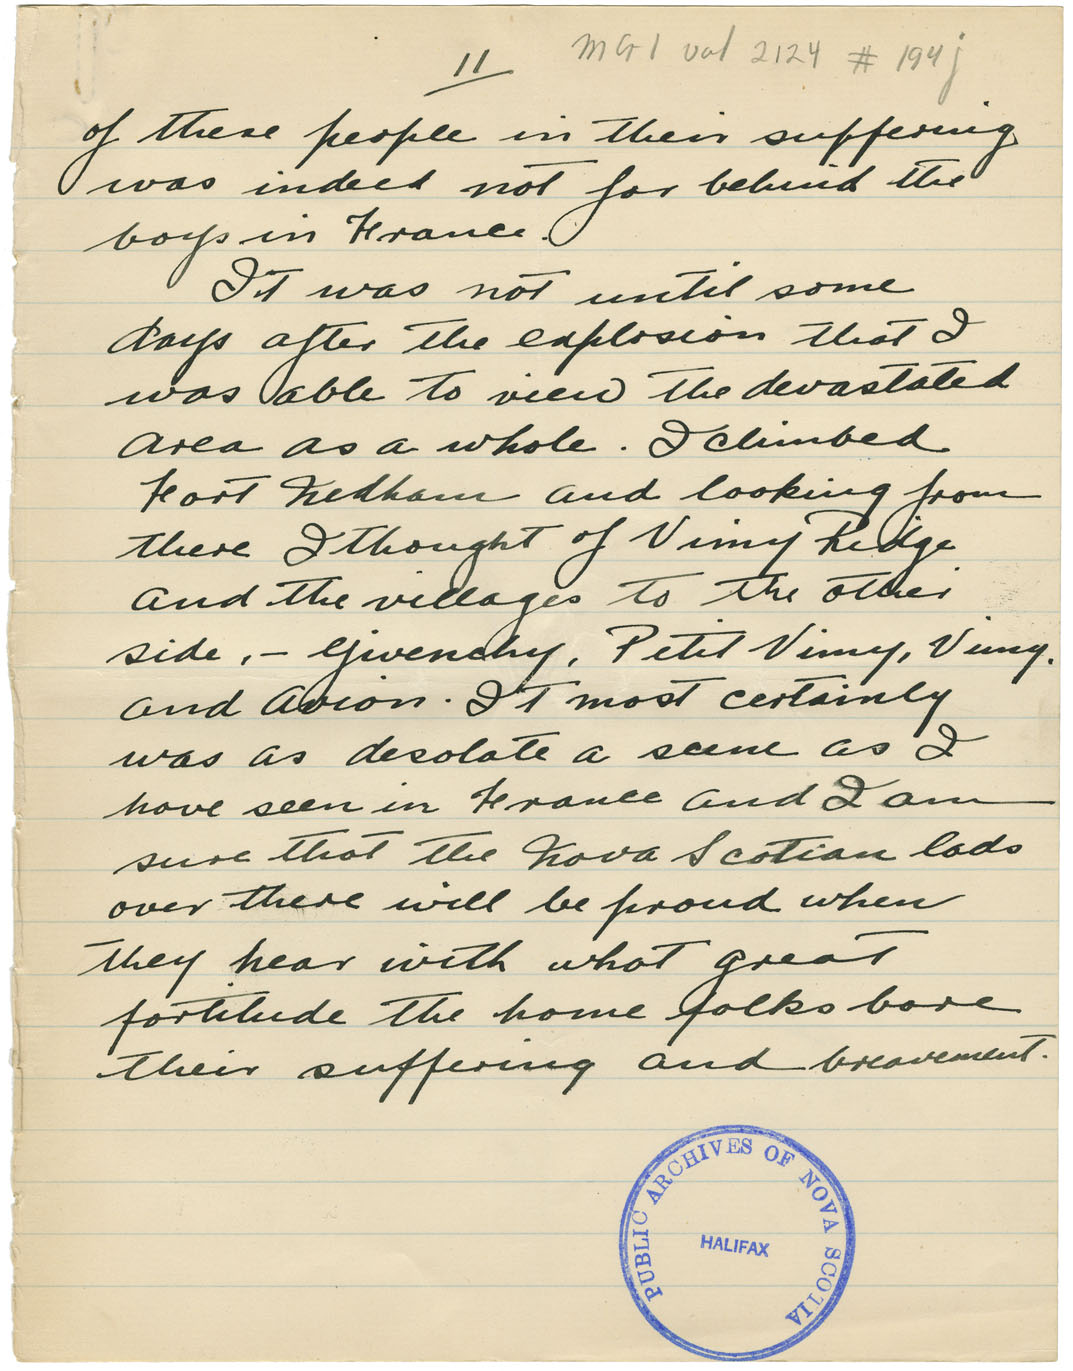 11
MG1 vol 2124 # 194j
of these people in their suffering
was indeed not far behind the
boys in France.
It was not until some
days after the explosion that I
was able to view the devastated
area as a whole. I climbed
Fort Nedham and looking from
there I thought of Vimy Ridge
and the villages to the other
side, - Givenchy, Petit Vimy, Vimy.
and Avion. It most certainly
was as desolate a scene as I
have seen in France and I am
sure that the Nova Scotian lads
over there will be proud when
they hear with what great
fortitude the home folks bore
their suffering and breavement.
PUBLIC ARCHIVES OF NOVA SCOTIA
HALIFAX